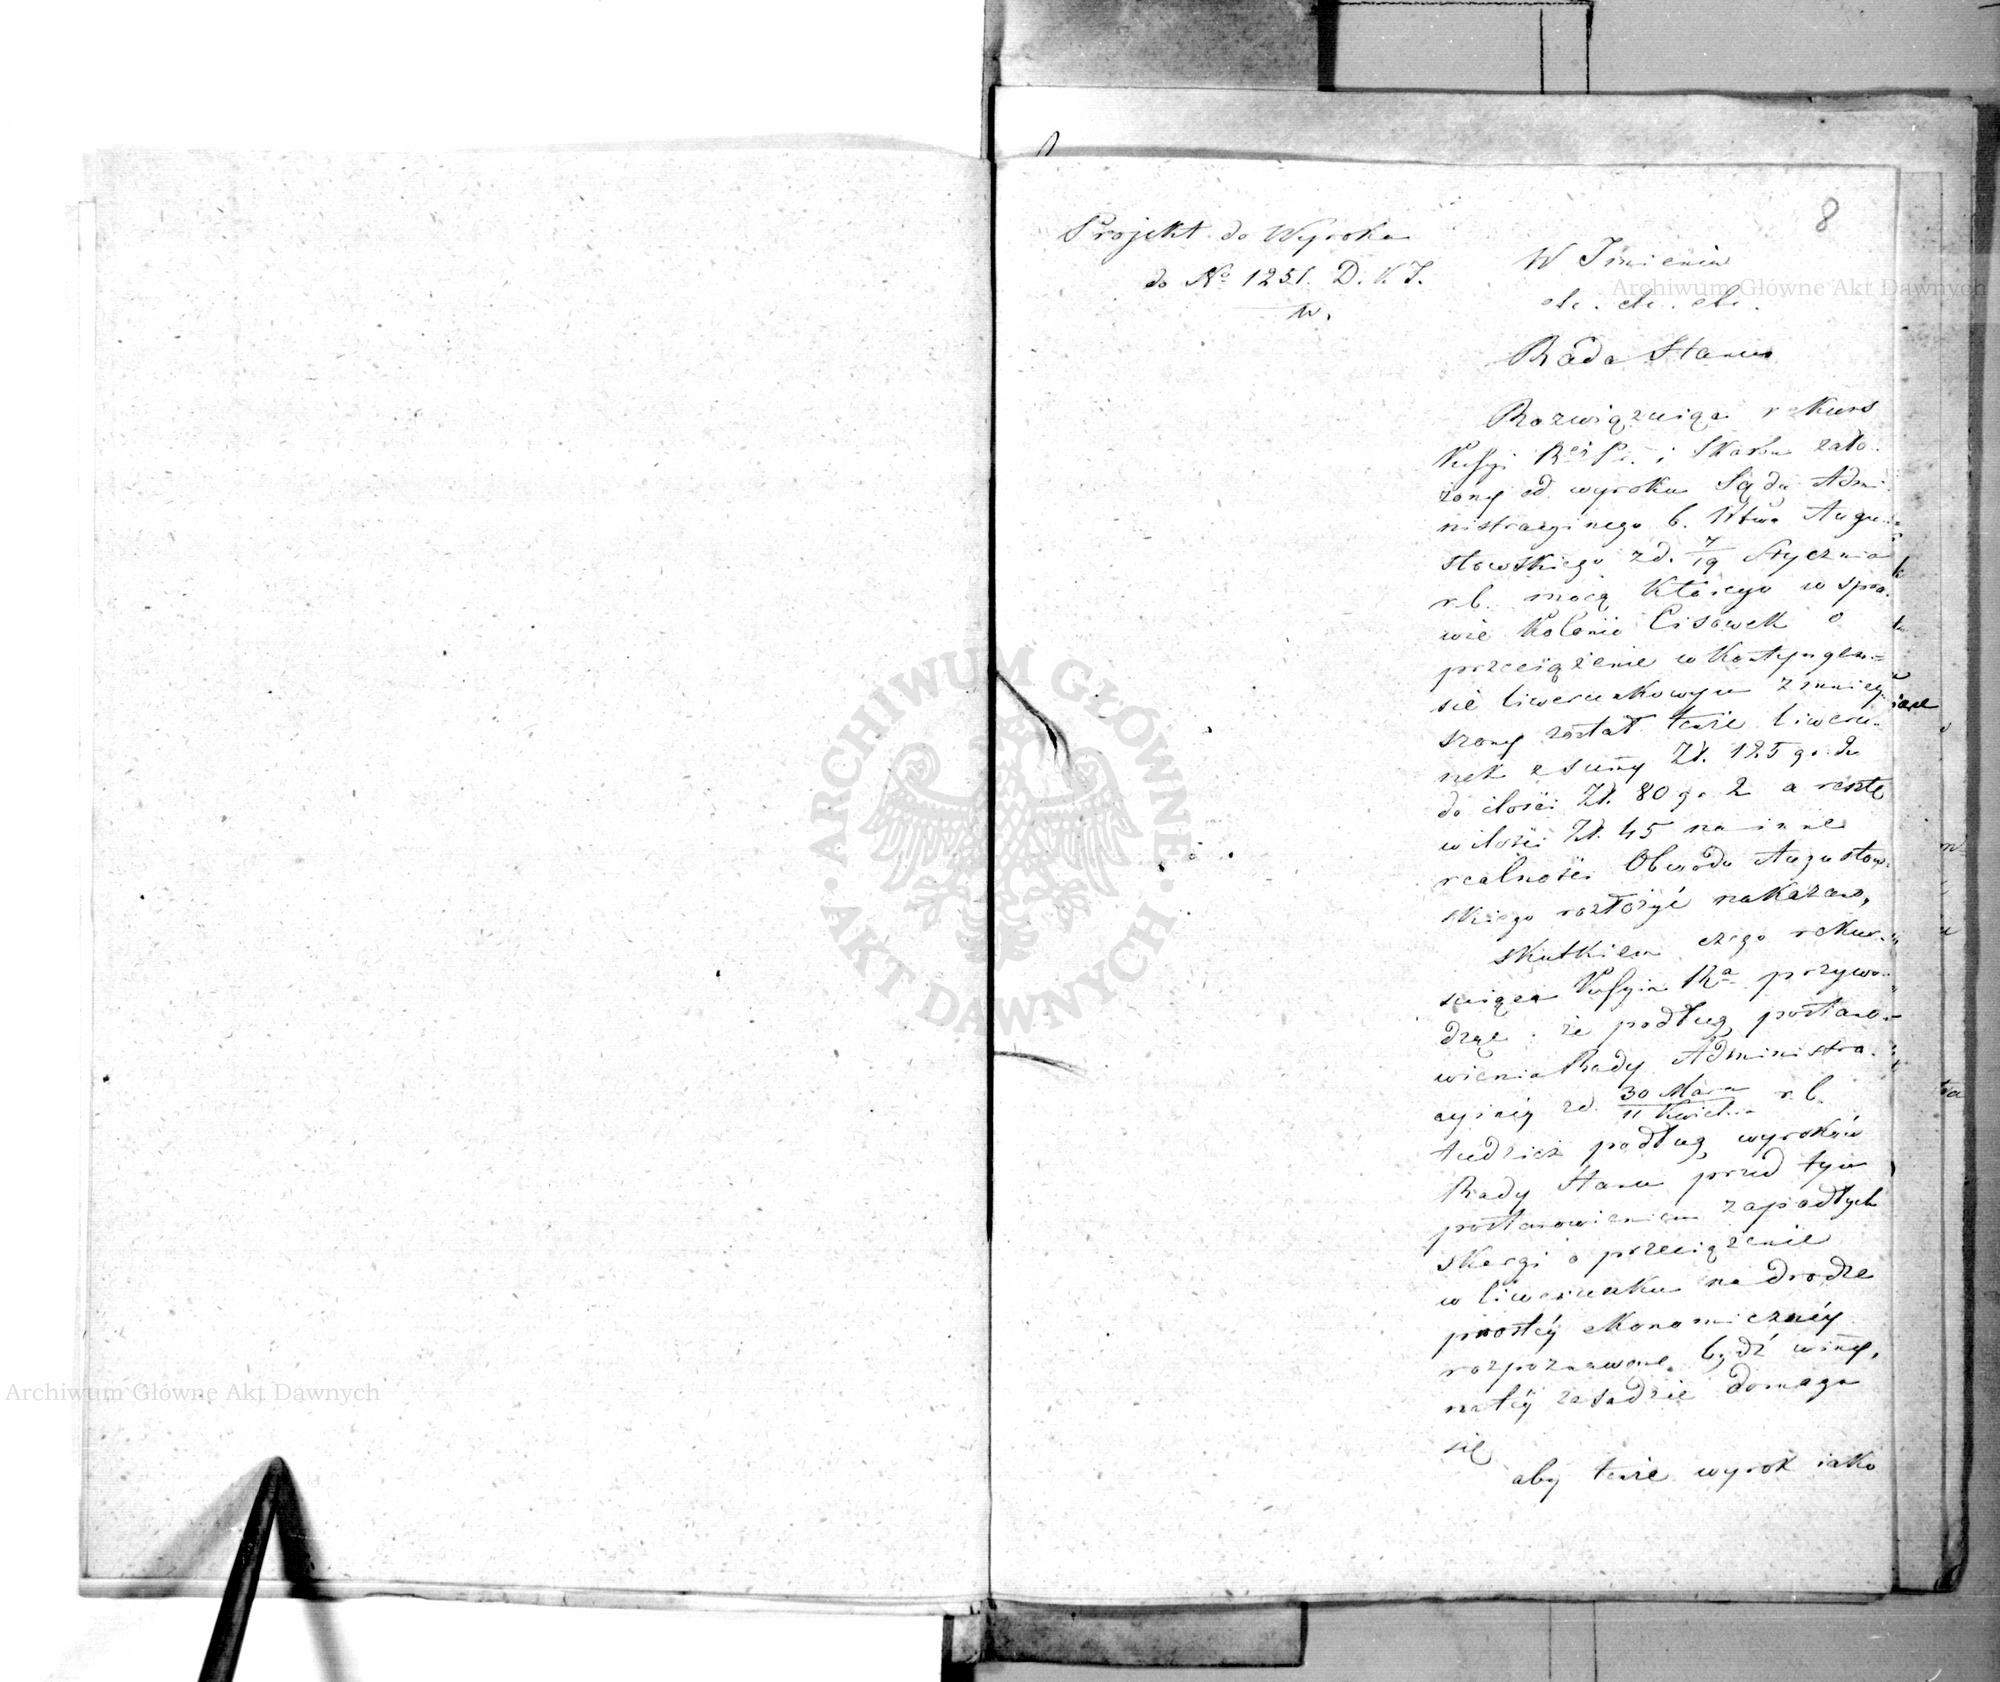 8
Projekt do Wyroku
do No 1251. D.K.J.
W.
W Imieniu
etc. etc. etc.
Rada Stanu
Rozwiązuiąc rekurs
Kssyi R. i Skarbu zało-
żony od wyroku Sądu Admi-
nistracyinego b. Wtwa Augu-
stowskiego zd. 7/19 Stycznia
r.b. mocą którego w spra-
wie Kolonii Cisówek o
przeciążenie w Kontyngen-
sie liwerunkowym zmniey-
szony został tenże liweru-
nek z sumy Zł. 125 gr. 2
do ilości Zł. 80 gr. 2 a resztę
w ilości Zł. 45 na inne
realności Obwodu Augustow-
skiego rozłożyć nakazano,
skutkiem czego rekur-
suiąca Kssyia Rza przywo-
dząc, że podług postano-
wienia Rady Administra-
cyinéy zd. 30 Marca/11 Kwietnia r.b.
tudzież podług wyroków
Rady Stanu przed tym
postanowieniem zapadłych
skargi o przeciążenie
w liwerunku na drodze
prostéy ekonomicznéy
rozpoznawane bydź winny,
na téy zasadzie domaga
się
aby tenże wyrok iako
Archiwum Główne Akt Dawnych
Archiwum Główne Akt Dawnych
ARCHIWUM GŁÓWNE
AKT DAWNYCH